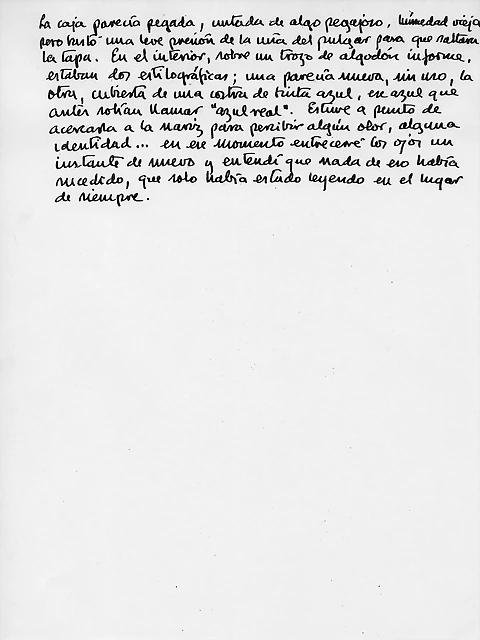 La caja parecía pegada, untada de algo pegajoso, humedad vieja
pero bastó una leve presión de la uña del pulgar para que saltara
la tapa. En el interior, sobre un trozo de algodón informe,
estaban dos estilográficas; una parecía nueva, sin uso, la
otra, cubierta de una costra de tinta azul, ese azul que
antes solían llamar "azul real". Estuve a punto de
acercarla a la nariz para percibir algún olor, alguna
identidad... en ese momento entrecerré los ojos un
instante de nuevo y entendí que nada de eso había
sucedido, que solo había estado leyendo en el lugar
de siempre.